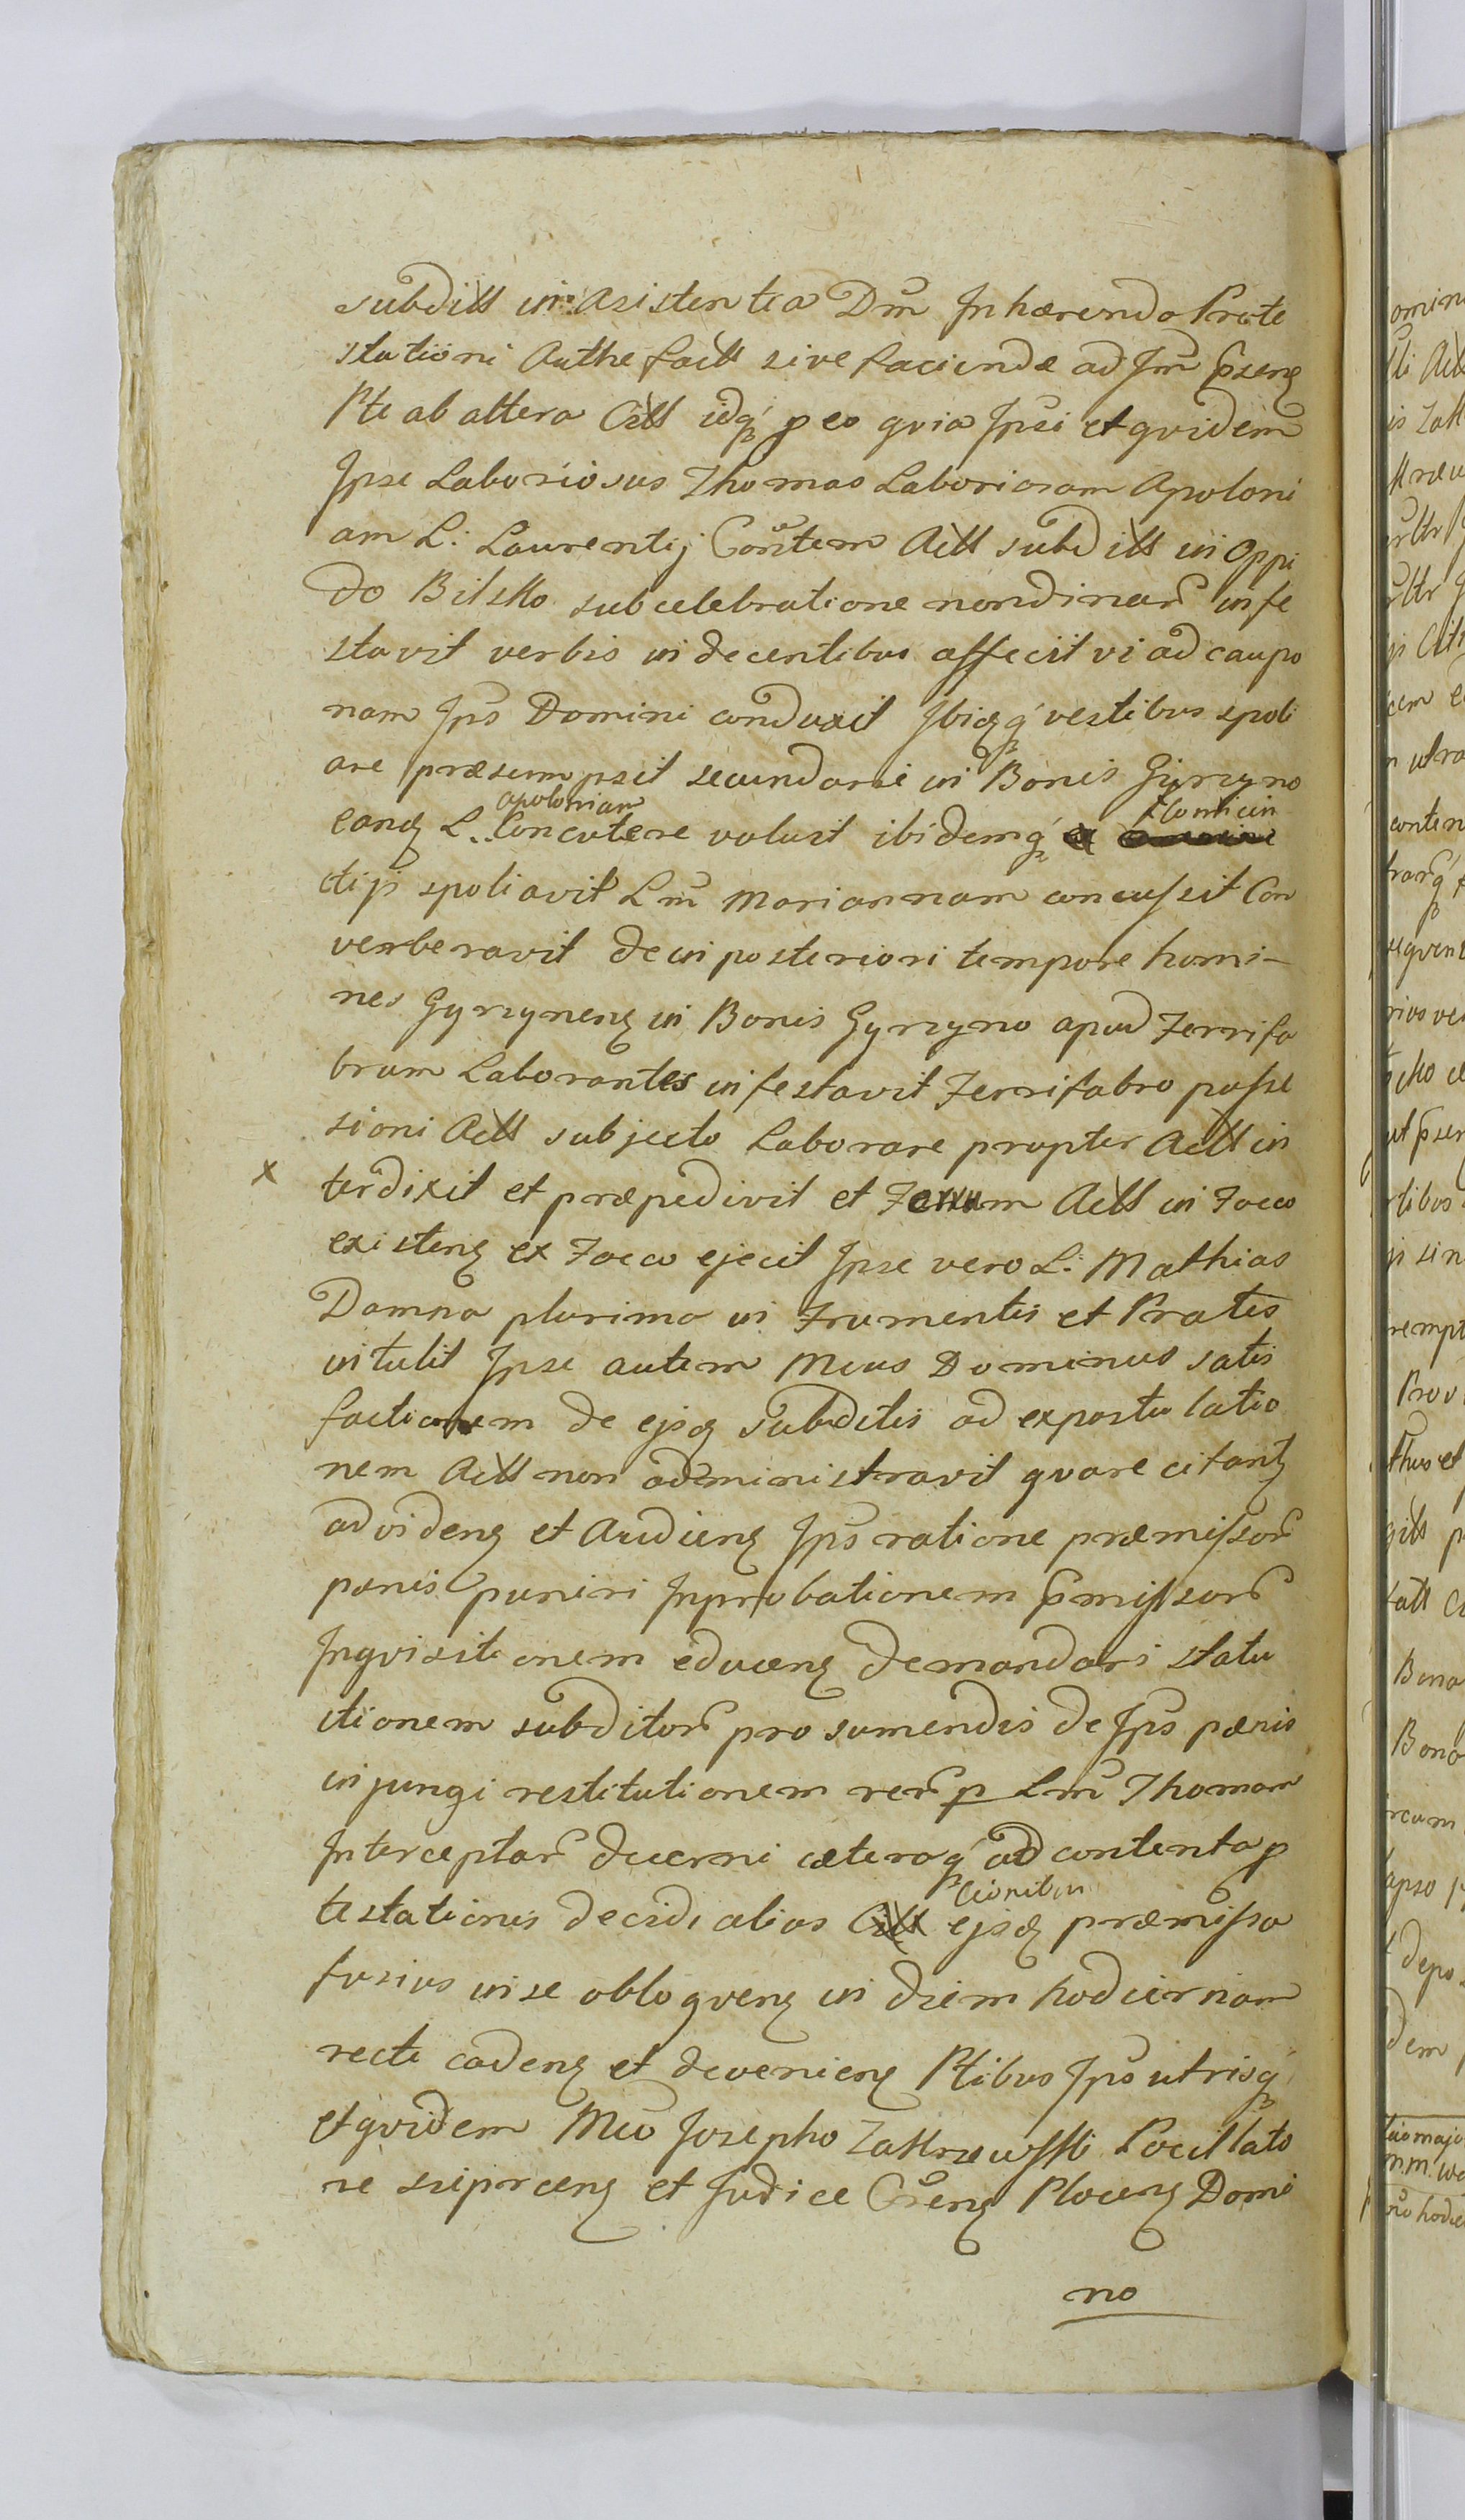 subditt in asistentia Dni Inhærendo Prote
stationi Anthe factt sive faciendæ ad Im psenz
Pte ab altera Citt idq p eo qvia Ipsi et qvidem
Ipse Laboriosus Thomas Laboriosam Apoloni
am L: Laurentij Contem Actt subditt in Oppi
do Bilsko sub celebratione nondinar infe
stavit verbis indecentibus affecit vi ad caupo
nam Ips Domini conduxit Ibiqq vestibus spoli
are præsumpsit secundarie in Bonis Gyrzyno
eanq L. Apoloniam Concutere voluit ibidemq
ctijs spoliavit Lm Mariannam concussit Con
verberavit dein posteriori tempore homi-
nes Gyrzynenz in Bonis Gyrzyno apud Ferrifa
brum Laborantes infestavit Ferrifabro posse
sioni Actt subjecto Laborare propter Actt in
x terdixit et præpedivit et Ferrum Actt in Foco
existenz ex Foco ejecit Ipse vero L: Mathias
Damna plurima in Frumentis et Pratis
intulit Ipse autem Mcus Dominus satis
factionem de ejsq subditis ad expostulatio
nem Actt non administravit qvare citantz
ad videnz et Audienz Ips ratione præmissor
pœnis puniri Inprobationem pmissor
Inqvisitionem educenz demandari statu
itionem subditor pro sumendis de Ips pænis
injungi restitutionem rer p Lm Thomam
Interceptar decerni cæteraq ad contenta p
testationis decidi alias Citt cionibus ejsq præmissa
fusius in se obloqvenz in diem hodiernam
recte cadenz et devenienz Ptibus Ips utrisq
et qvidem Mco Josepho Zakrzewski Pocillato
re sieprcenz et Judice Crenz Plocenz Domi
no